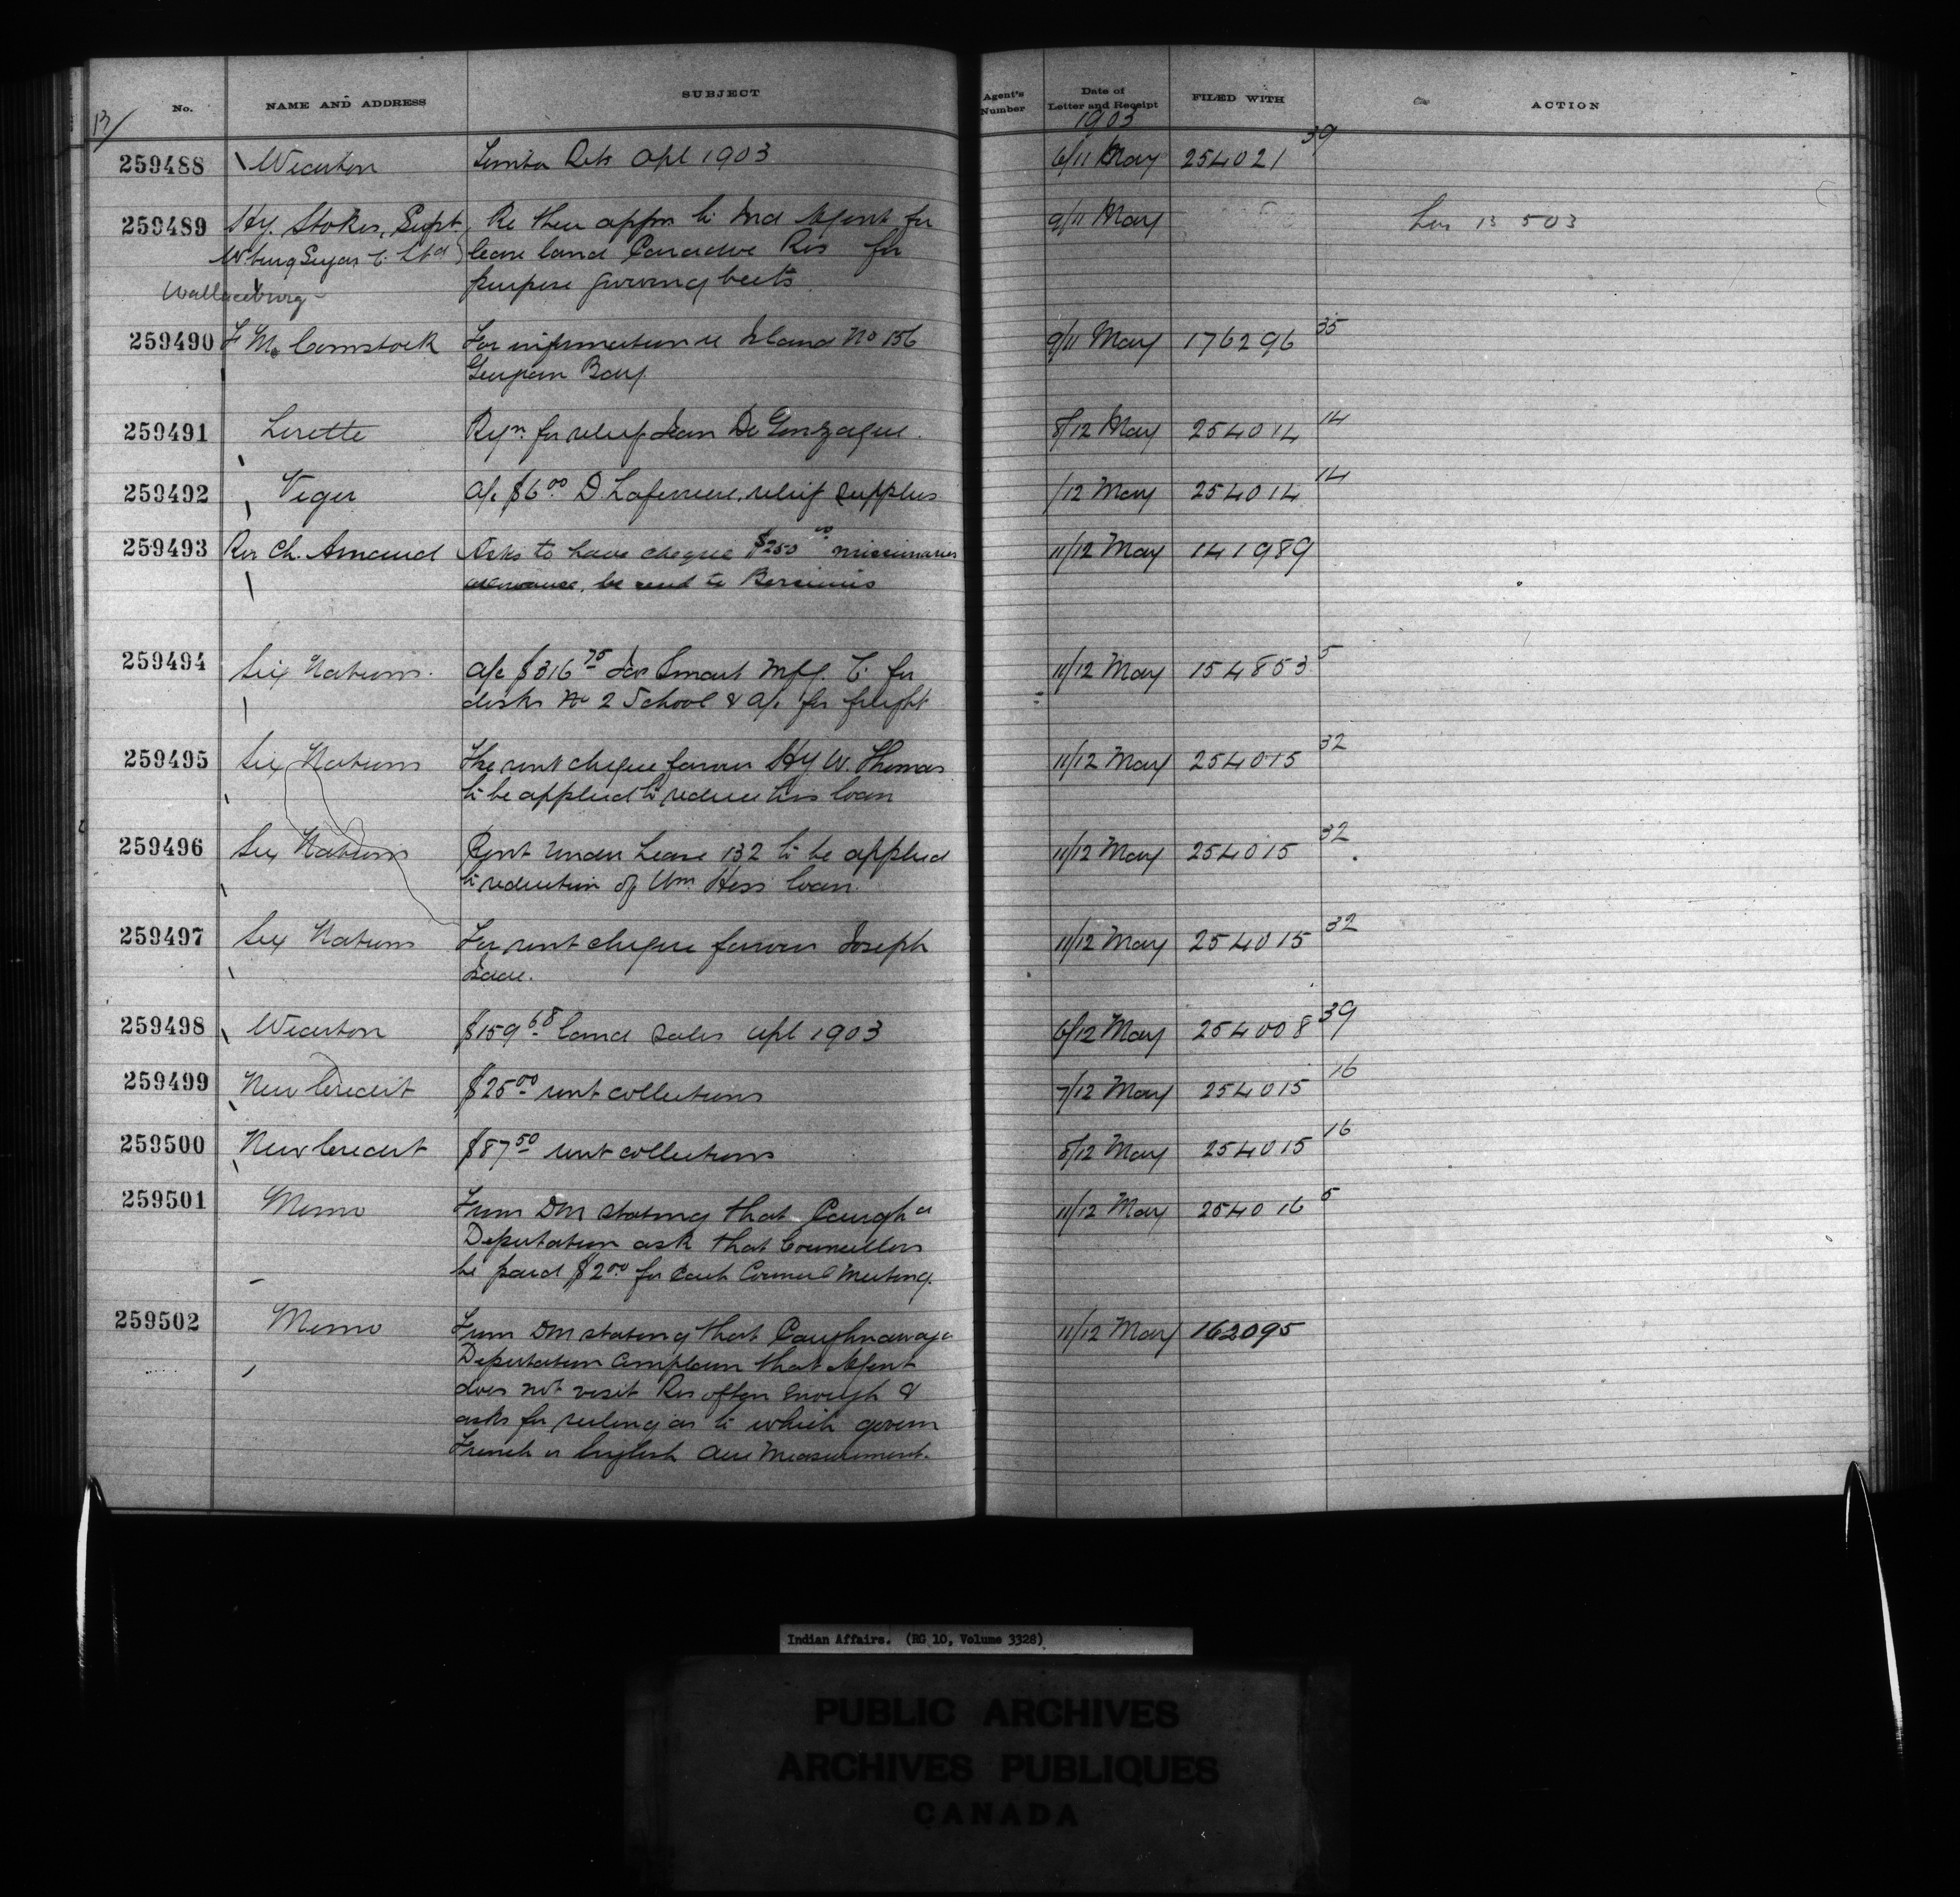 No. NAME AND ADDRESS SUBJECT Agent's Number Date of Letter and Receipt FILED WITH ACTION
13/ 1903
259488 Wiarton Timber Rets Apl 1903 6/11 May 254021 39
259489 Hy. Stokes, Supt, Re their appn to Ind Agent for 9/11 May
W'burg Sugar Co Ltd lease land Caradoc Res for
Wallaceburg purpose growing beets
259490 F M. Comstock For information re Island No 156 9/11 May 176296 35
Georgian Bay
259491 Lorette Reqn for relief Jean De Gonzague. 8/12 May 254014 14
259492 Viger a/c $6.00 D. Laferriere, relief supplies /12 May 254014 14
259493 Rev Ch. Arnaud Asks to have cheque $250 00 missionaries 11/12 May 141989
allowance, be sent to Bersimis
259494 Six Nations. a/c $316 75 Jas Smart Mfg. Co for 11/12 May 154853 5
desks No 2 School & a/c for freight
259495 Six Nations The rent cheque favour Hy W. Thomas 11/12 May 254015 32
to be applied to reduce his loan
259496 Six Nations Rent under Lease 132 to be applied 11/12 May 254015 32
to reduction of Wm Hess loan
259497 Six Nations For rent cheque favour Joseph 11/12 May 254015 32
Isaac.
259498 Wiarton $159 68 land sales Apl 1903 6/12 May 254008 39
259499 New Credit $25 00 rent collections 7/12 May 254015 16
259500 New Credit $87 50 rent collections 8/12 May 254015 16
259501 Memo From DM stating that Caugha 11/12 May 254016 5
Deputation ask that Councillors
be paid $2 00 for each Council Meeting.
259502 Memo From DM stating that Caughnawaga 11/12 May 162095
Deputation complain that Agent
does not visit Res often enough &
asks for ruling as to which govern
French or English Acre Measurement.
Indian Affairs. (RG 10, Volume 3328)
PUBLIC ARCHIVES
ARCHIVES PUBLIQUES
CANADA